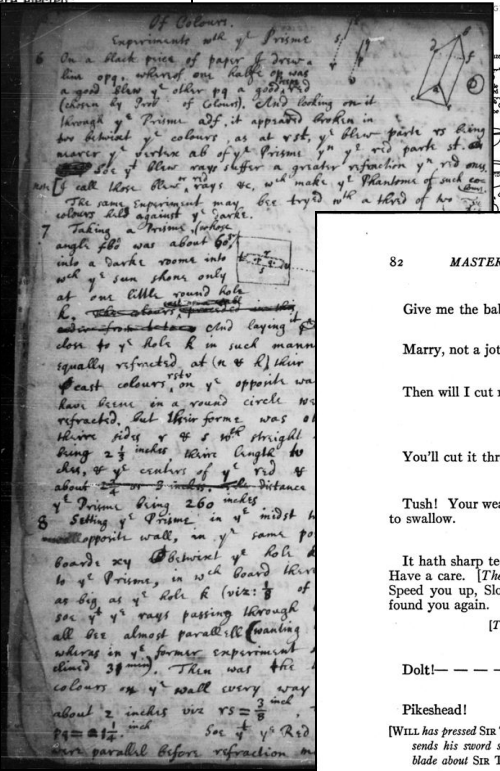 Of Colours.
Experiments wth ye Prisme
6 On a black piece of paper I drew a
line opq, whereof one halfe op was
a good blew ye other pq a good deepe red
(chosen by Prob of Colours). And looking on it
through ye Prisme adf, it appeared broken in
two betwixt ye colours, as at rst, ye blew parte rs being
nearer ye vertex ab of ye Prisme yn ye red parte st.
Soe yt blew rays suffer a greater refraction yn red ones.
note I call those blew, red rays &c, wch make ye Phantome of such
The same Experiment may bee tryed wth a thred of two
colours held against ye darke.
7 Taking a Prisme, (whose
angle fbd was about 60
into a darke roome into
wch ye sun shone only
at one little round hole
k. And laying it
close to ye hole k in such mann
equally refracted at (n & h) their
cast colours rstv on ye opposite wa
have beene in a round circle we
refracted, but their forme was
theire sides r & s wth streight
being 2 1/3 inches, theire length
ches, & ye centers of ye red &
about distance
ye Prisme being 260 inches
8 Setting ye Prisme in ye midst
opposite wall, in ye same po
boarde xy betwixt ye hole
to ye Prisme, in wch board there
as big as ye hole k (viz: 1/8 of
soe yt ye rays passing through
all bee almost parallell (wanting
wheras in ye former experiment
clined 31 min). Then was the
colours on ye wall every way
about 2 inches viz rs = 3/8 inch,
pq = 1/4 inch Soe yt ye Red
were parallel before refraction
82 MASTER
Give me the bal
Marry, not a jot
Then will I cut
You'll cut it thr
Tush! Your wea
to swallow.
It hath sharp te
Have a care. [The
Speed you up, Slo
found you again.
[T
Dolt!— — — —
Pikeshead!
[WILL has pressed SIR
sends his sword s
blade about SIR T